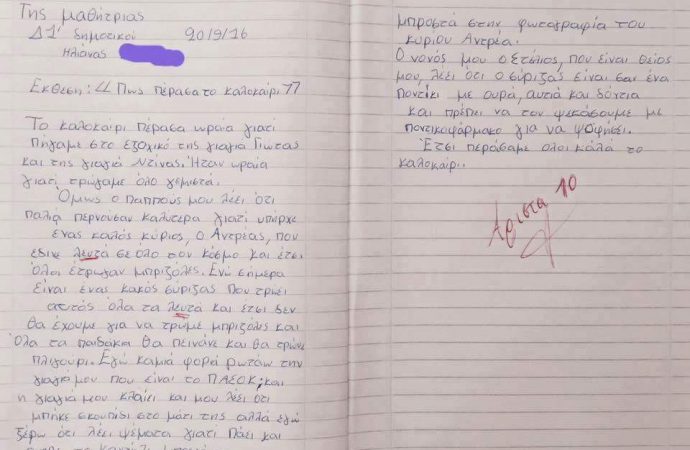 Της μαθήτριας
Δ1' δημοτικού 20/9/16
Ηλιάνας
Έκθεση: "Πως πέρασα το καλοκαίρι"
Το καλοκαίρι πέρασα ωραία γιατί
πήγαμε στο εξοχικό της γιαγιά Γιώτας
και της γιαγιά Ντίνας. Ήταν ωραία
γιατί τρώγαμε όλο γεμιστά.
Όμως ο παππούς μου λέει ότι
παλιά περνούσαν καλύτερα γιατί υπήρχε
ένας καλός κύριος, ο Αντρέας, που
έδινε λευτά σε όλο τον κόσμο και έτσι
όλοι έτρωγαν μπριζόλες. Ενώ σήμερα
είναι ένας κακός σύριζας που τρώει
αυτός όλα τα λευτά και έτσι δεν
θα έχουμε για να τρώμε μπριζόλες και
όλα τα παιδάκια θα πεινάνε και θα τρώνε
πλιγούρι. Εγώ καμιά φορά ρωτάω την
γιαγιά μου που είναι το ΠΑΣΟΚ; και
η γιαγιά μου κλαίει και μου λέει ότι
μπήκε σκουπίδι στο μάτι της αλλά εγώ
ξέρω ότι λέει ψέματα γιατί πάει και
μπροστά στην φωτογραφία του
κυρίου Αντρέα.
Ο νονός μου ο Στέλιος, που είναι θείος
μου, λέει ότι ο σύριζας είναι σαν ένα
ποντίκι με ουρά, αυτιά και δόντια
και πρέπει να τον ψεκάσουμε με
ποντικοφάρμακο για να ψοφήσει.
Έτσι περάσαμε όλοι καλά το
καλοκαίρι.
Άριστα 10